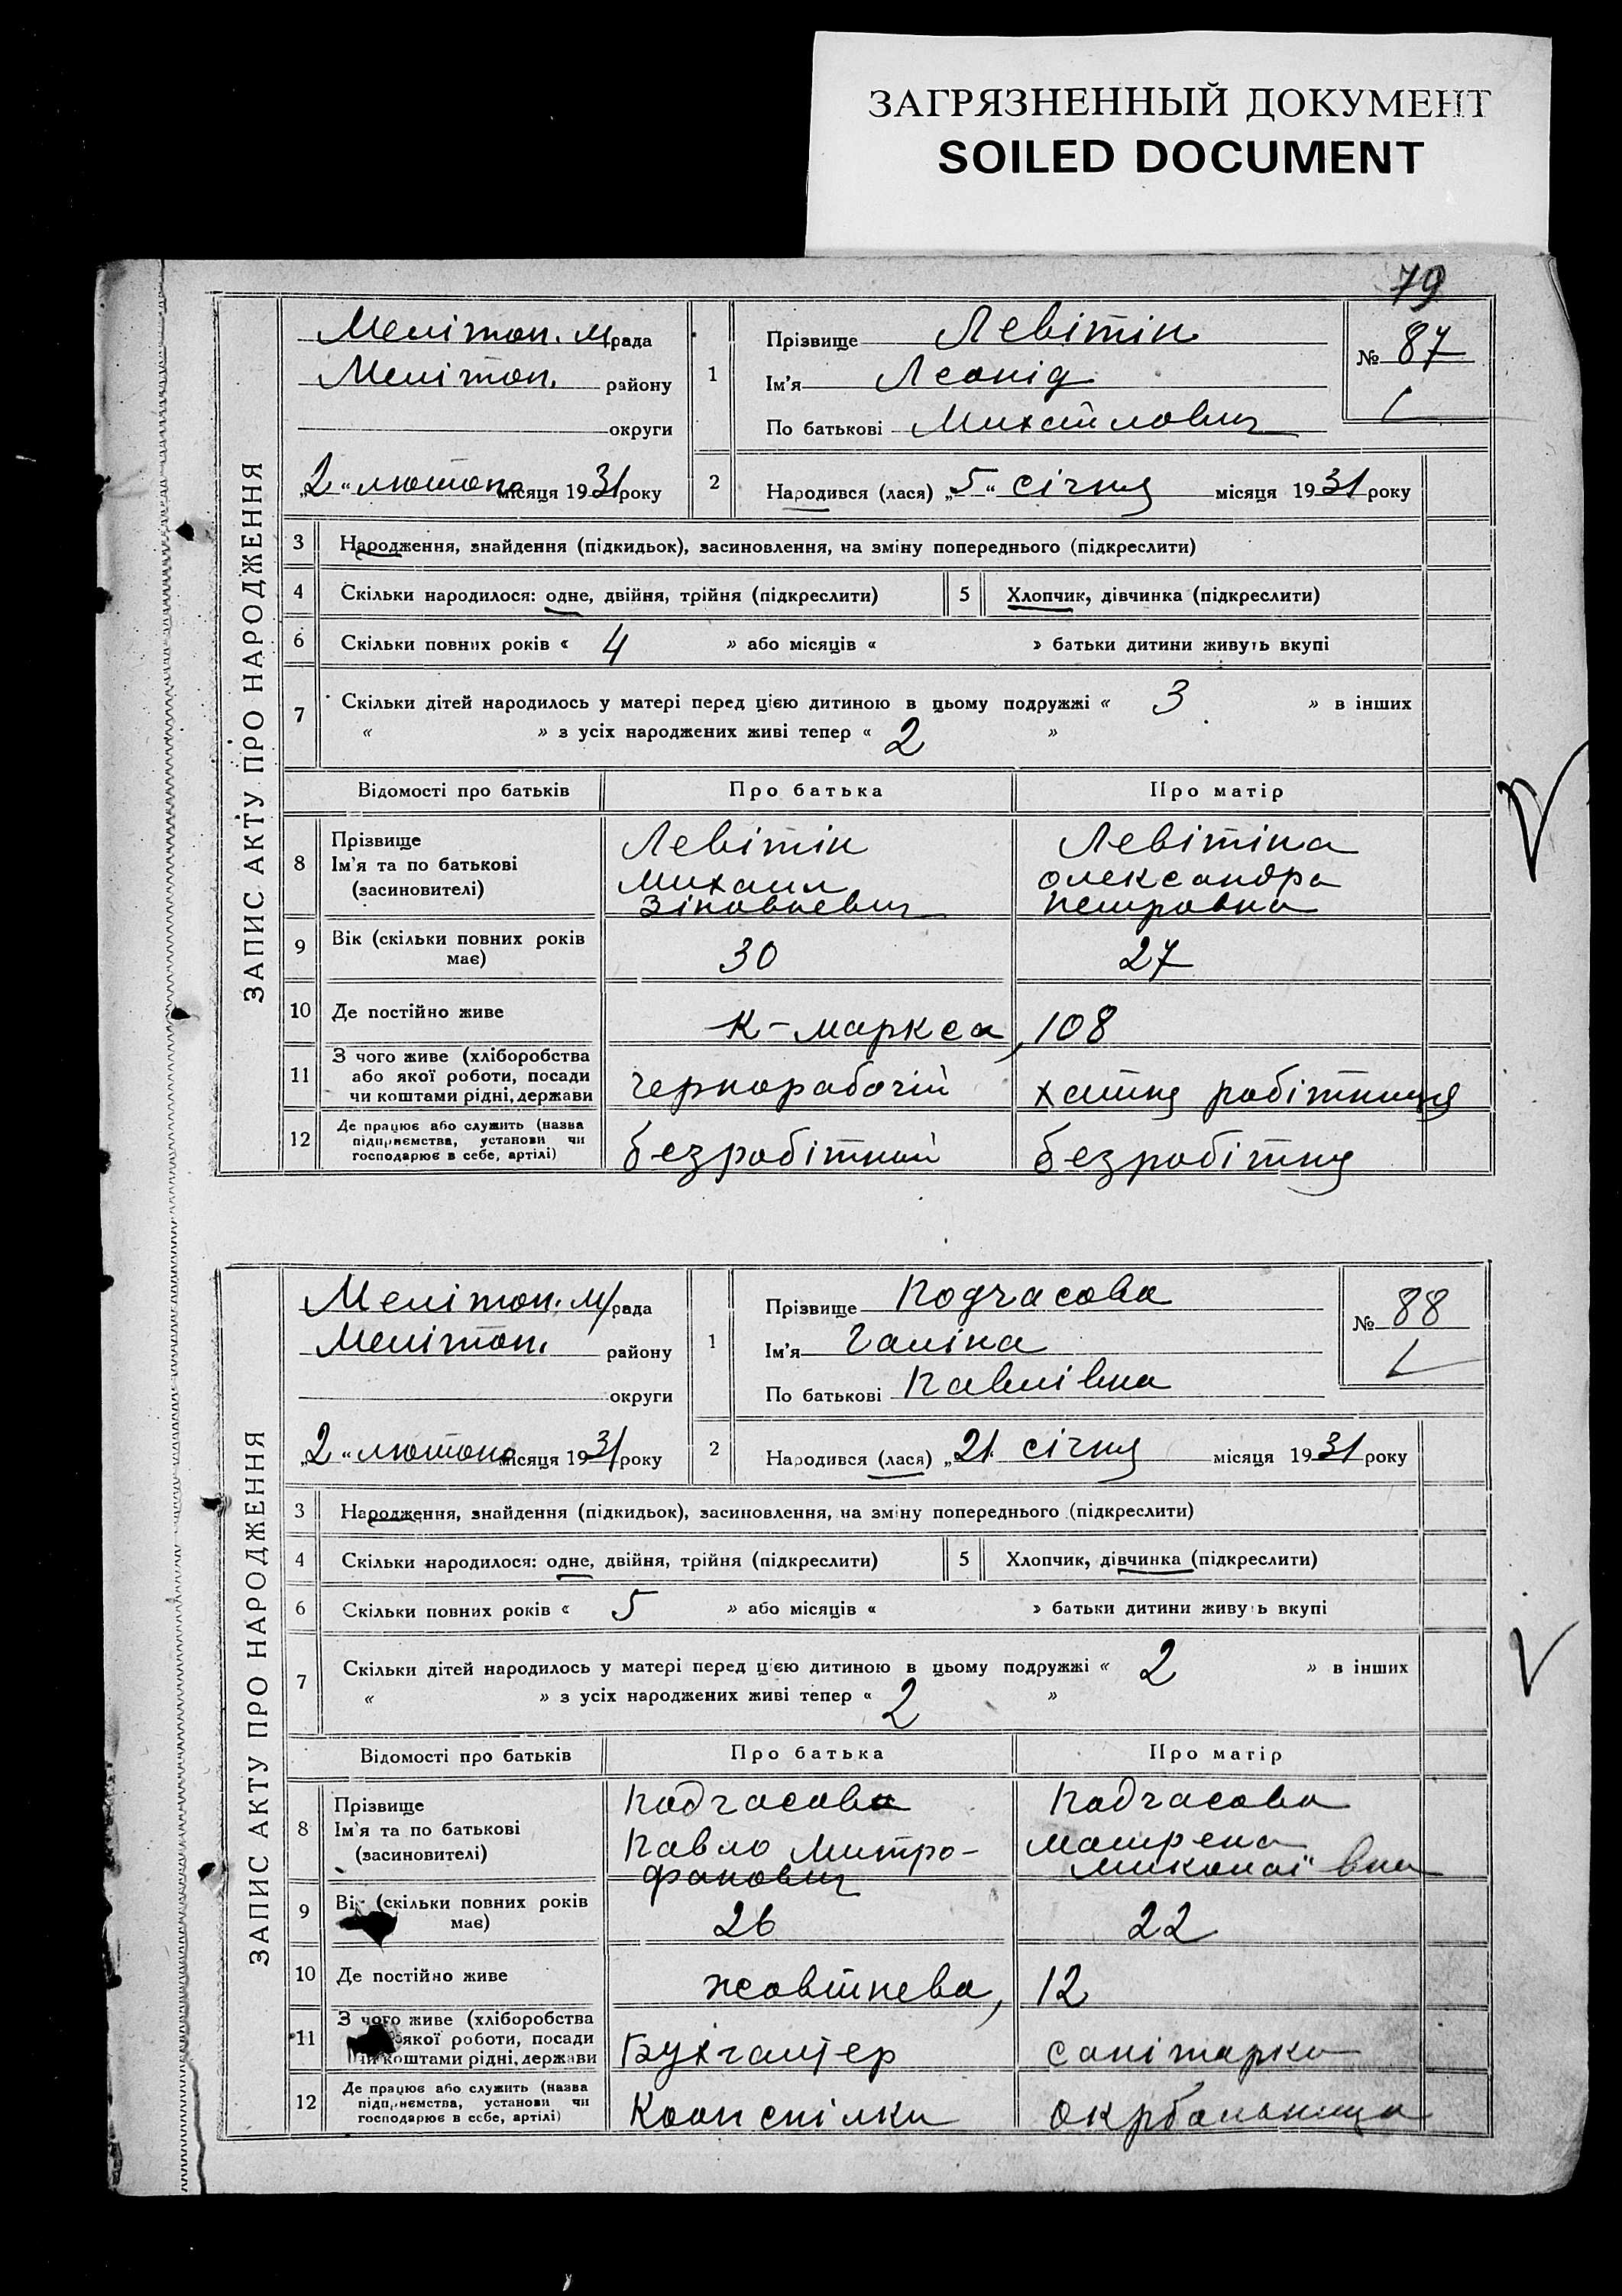 ЗАГРЯЗНЕННЫЙ ДОКУМЕНТ
SOILED DOCUMENT
79
ЗАПИС АКТУ ПРО НАРОДЖЕННЯ
Меліто­п. м/рада
Меліто­п. району
округи
„2“ лютого місяця 1931 року
1
Прізвище Левітін
Ім'я Леонід
По батькові Михайлович
№ 87
2
Народився (лася) „5“ січня місяця 1931 року
3 Народження, знайдення (підкидьок), засиновлення, на зміну попереднього (підкреслити)
4 Скільки народилося: одне, двійня, трійня (підкреслити) 5 Хлопчик, дівчинка (підкреслити)
6 Скільки повних років « 4 » або місяців « » батьки дитини живуть вкупі
7 Скільки дітей народилось у матері перед цією дитиною в цьому подружжі « 3 » в інших
« » з усіх народжених живі тепер « 2 »
Відомості про батьків Про батька Про матір
8 Прізвище Левітін Левітіна
Ім'я та по батькові Михаил Олександра
(засиновителі) Зіновьевич Петровна
9 Вік (скільки повних років має) 30 27
10 Де постійно живе К-Маркса, 108
11 З чого живе (хліборобства
або якої роботи, посади
чи коштами рідні, держави чернорабочій хатня робітниця
12 Де працює або служить (назва
підприємства, установи чи
господарює в себе, артілі) безробітний безробітня
ЗАПИС АКТУ ПРО НАРОДЖЕННЯ
Меліто­п. м/рада
Меліто­п. району
округи
„2“ лютого місяця 1931 року
1
Прізвище Подчасова
Ім'я Галіна
По батькові Павлівна
№ 88
2
Народився (лася) „21 січня місяця 1931 року
3 Народження, знайдення (підкидьок), засиновлення, на зміну попереднього (підкреслити)
4 Скільки народилося: одне, двійня, трійня (підкреслити) 5 Хлопчик, дівчинка (підкреслити)
6 Скільки повних років « 5 » або місяців « » батьки дитини живуть вкупі
7 Скільки дітей народилось у матері перед цією дитиною в цьому подружжі « 2 » в інших
« » з усіх народжених живі тепер « 2 »
Відомості про батьків Про батька Про матір
8 Прізвище Подчасов Подчасова
Ім'я та по батькові Павло Митро- Матрена
(засиновителі) фанович Миколаївна
9 Вік (скільки повних років має) 26 22
10 Де постійно живе Жовтнева, 12
11 З чого живе (хліборобства
якої роботи, посади
чи коштами рідні, держави Бухгалтер санітарка
12 Де працює або служить (назва
підприємства, установи чи
господарює в себе, артілі) Коопспілки Окрбольница